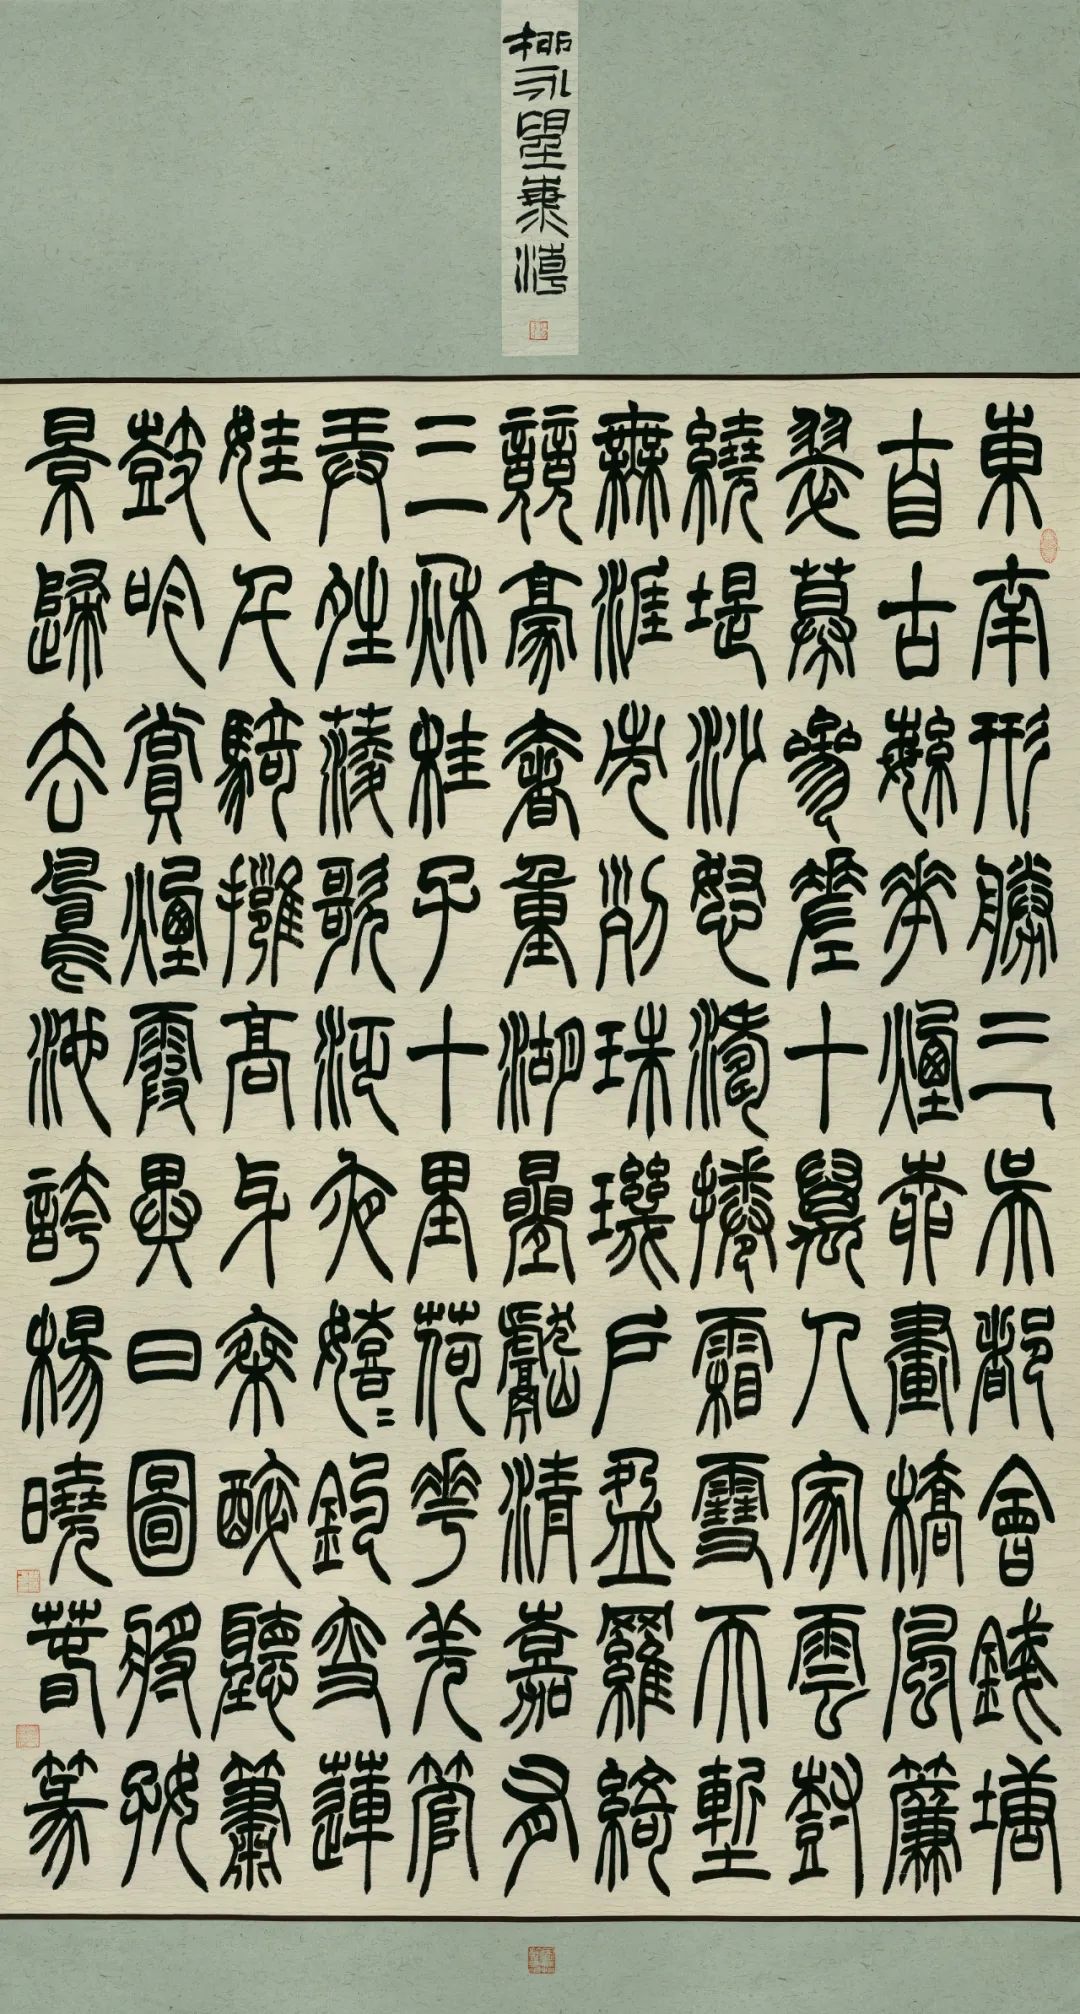 柳永望海潮
東南形勝三吳都會錢塘
自古繁華煙柳畫橋風簾
翠幕參差十萬人家雲樹
繞堤沙怒濤捲霜雪天塹
無涯市列珠璣戶盈羅綺
競豪奢重湖疊巘清嘉有
三秋桂子十里荷花羌管
弄晴菱歌泛夜嬉嬉釣叟蓮
娃千騎擁高牙乘醉聽簫
鼓吟賞煙霞異日圖將好
景歸去鳳池誇楊曉春篆